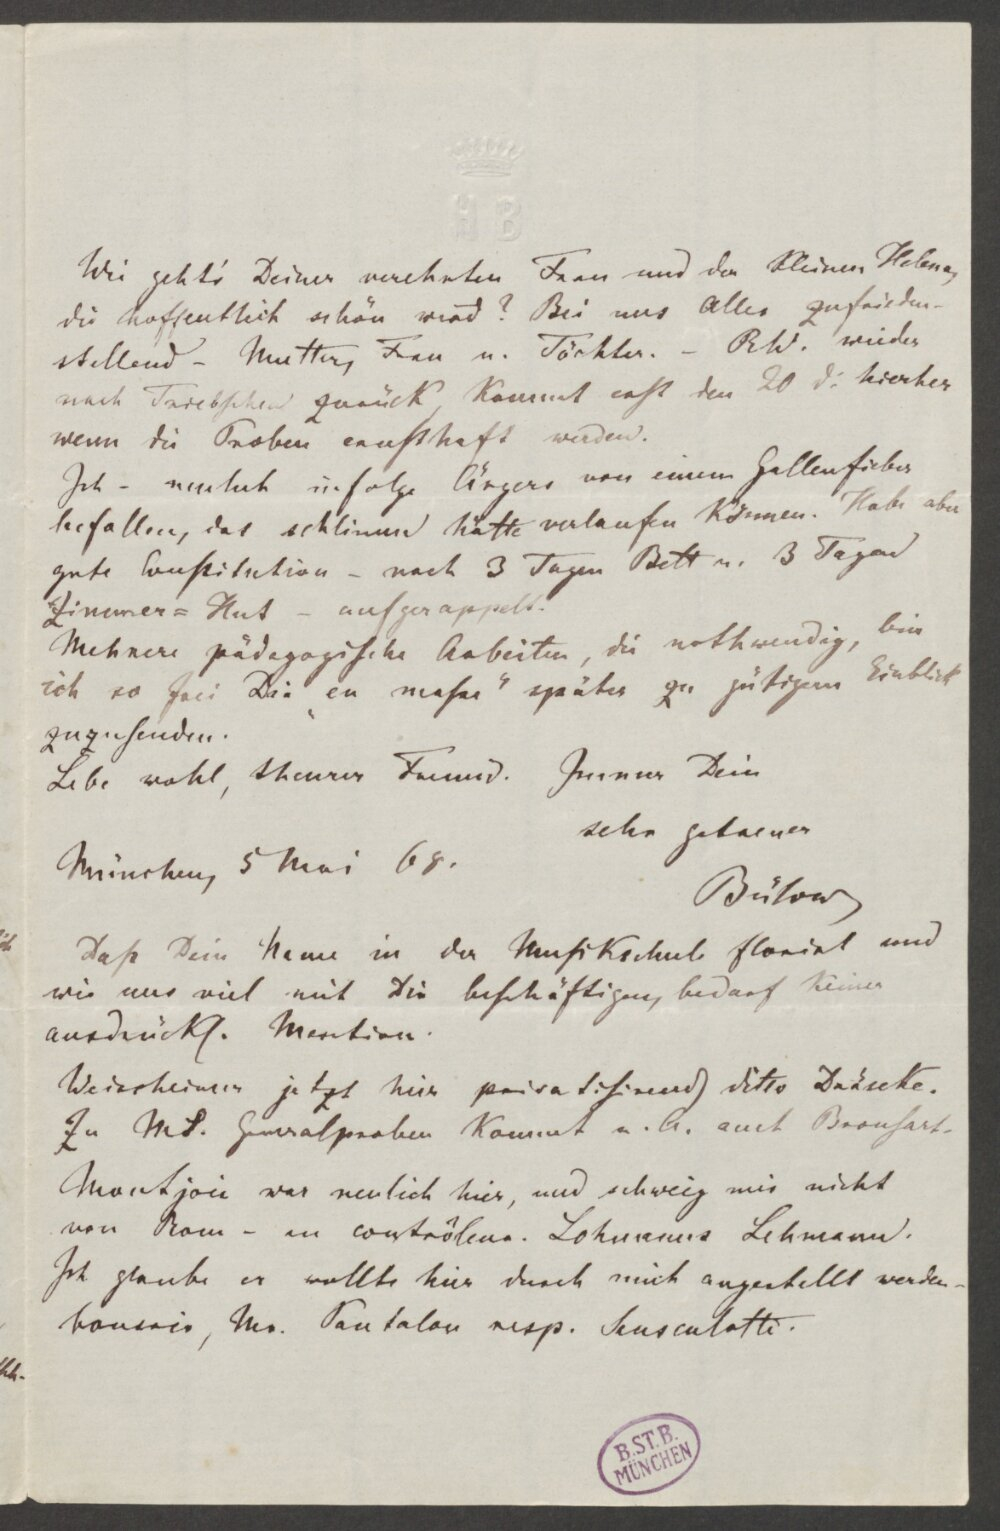 H B
Wie geht's Deiner verehrten Frau und der kleinen Helena,
die hoffentlich schön wird? Bei uns Alles zufrieden-
stellend – Mutter, Frau u. Töchter. – R.W. wieder
nach Triebschen zurück, kommt erst den 20 d: hierher
wenn die Proben ernsthaft werden.
Ich – neulich infolge Ärgers von einem Gallenfieber
befallen, das schlimm hätte verlaufen können. Habe aber
gute Constitution – nach 3 Tagen Bett u. 3 Tagen
Zimmer=Hut – aufgerappelt.
Mehrere pädagogische Arbeiten, die nothwendig, bin
ich so frei Dir „en masse“ später zu gütigem Einblick
zuzusenden.
Lebe wohl, theurer Freund. Immer Dein
sehr getreuer
München, 5 Mai 68.
Bülow
Daß Dein Name in der Musikschule floriert und
wir uns viel mit Dir beschäftigen, bedarf keiner
ausdrückl. Mention.
Weissheimer jetzt hier privatisirend, ditto Dräseke.
Zu MS. Generalproben kommt u. A. auch Bronsart.
Montjoie war neulich hier, und schwieg mir nicht
von Rom – en contrôleur. Lohmanns Lehmann.
Ich glaube er wollte hier durch mich angestellt werden –
bonsoir, Mr. Pantalon resp. Sansculotte.
B.ST.B.
MÜNCHEN